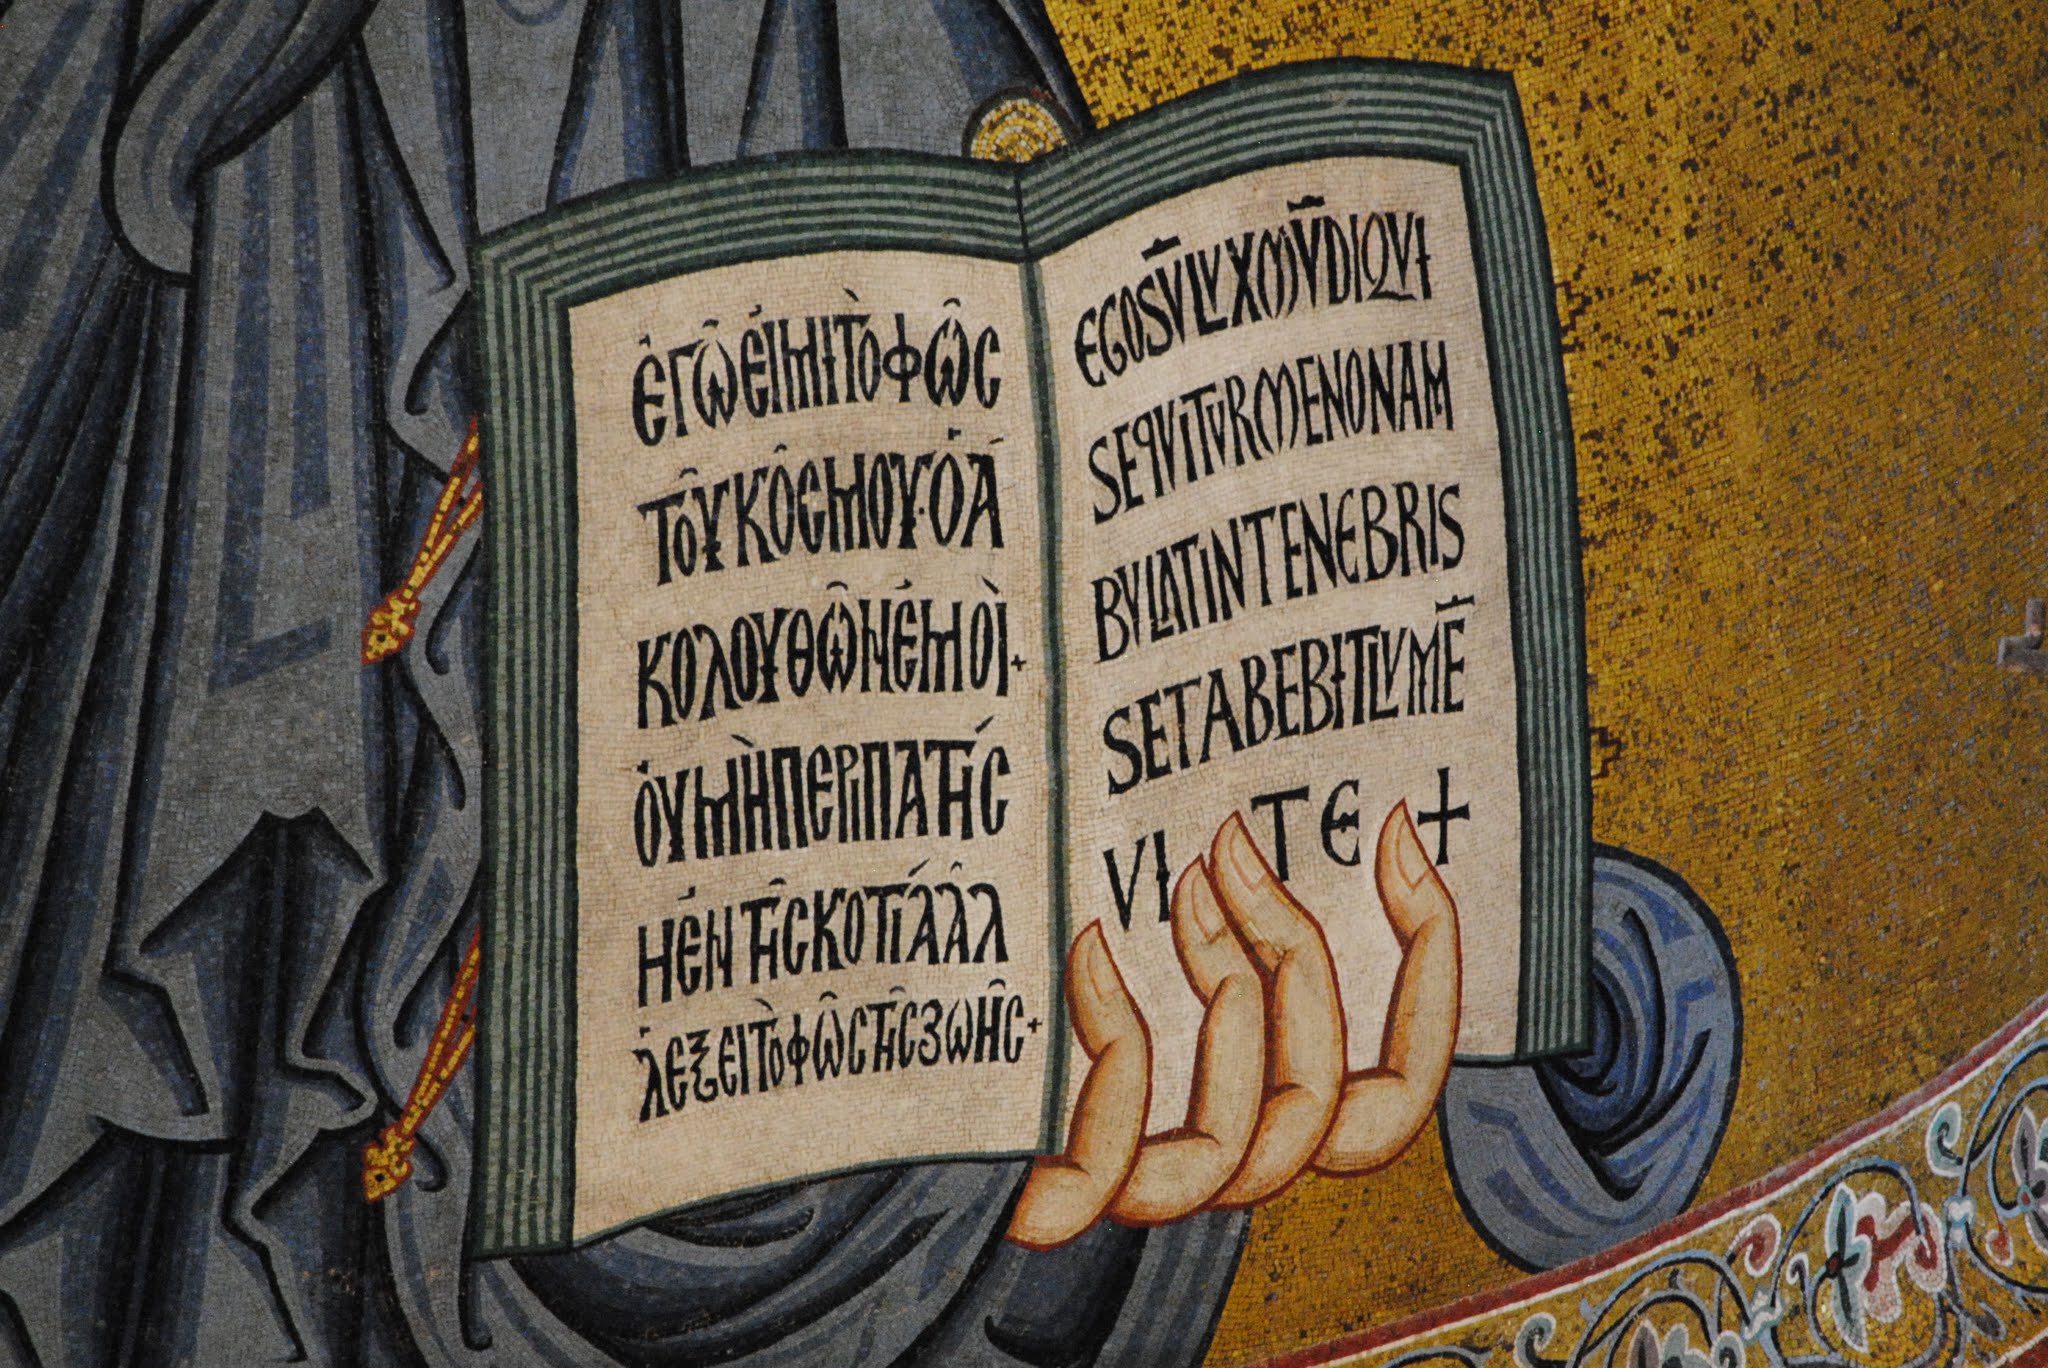 ἐγῶ εἰμὶ τὸ φῶς
τοῦ κὸσμου· ὁ ἀ
κολουθῶν ἐμοὶ+
οὐ μὴ περιπατίσ
η ἐν τῆ σκοτίᾳ ἀλ
λ ἐξει τὸ φῶς τῆς ζωῆς+
EGO SV̅ LVX MV̅DI QVI
SEQVITVR ME NON AM
BVLAT IN TENEBRIS
SET ABEBIT LVME̅
VITE +